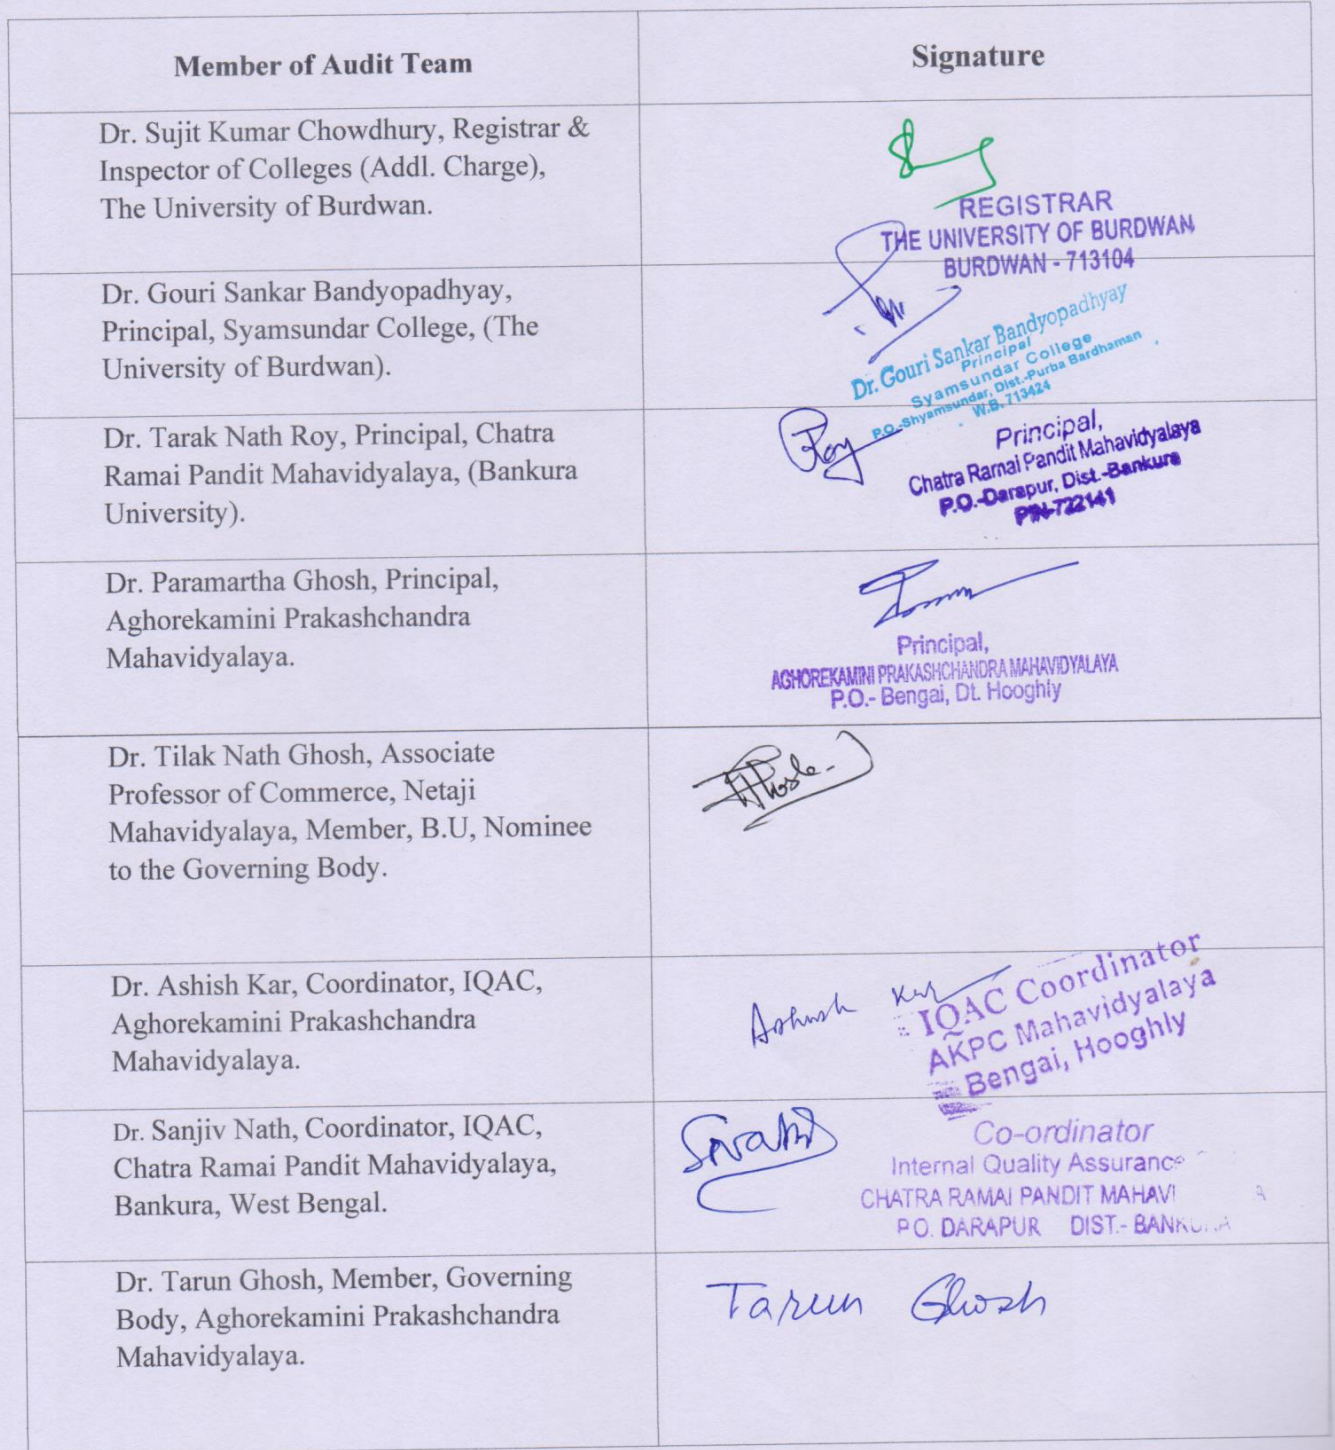 Member of Audit Team
Signature
Dr. Sujit Kumar Chowdhury, Registrar &
Inspector of Colleges (Addl. Charge),
The University of Burdwan.
REGISTRAR
THE UNIVERSITY OF BURDWAN
BURDWAN - 713104
Dr. Gouri Sankar Bandyopadhyay,
Principal, Syamsundar College, (The
University of Burdwan).
Dr. Gouri Sankar Bandyopadhyay
Principal
Syamsundar College
P.O.-Shyamsundar, Dist.-Purba Bardhaman
W.B. 713424
Dr. Tarak Nath Roy, Principal, Chatra
Ramai Pandit Mahavidyalaya, (Bankura
University).
Roy
Principal,
Chatra Ramai Pandit Mahavidyalaya
P.O.-Darapur, Dist.-Bankura
PIN-722141
Dr. Paramartha Ghosh, Principal,
Aghorekamini Prakashchandra
Mahavidyalaya.
Principal,
AGHOREKAMINI PRAKASHCHANDRA MAHAVIDYALAYA
P.O.- Bengai, Dt. Hooghly
Dr. Tilak Nath Ghosh, Associate
Professor of Commerce, Netaji
Mahavidyalaya, Member, B.U, Nominee
to the Governing Body.
Dr. Ashish Kar, Coordinator, IQAC,
Aghorekamini Prakashchandra
Mahavidyalaya.
Ashish Kar
IQAC Coordinator
AKPC Mahavidyalaya
Bengai, Hooghly
Dr. Sanjiv Nath, Coordinator, IQAC,
Chatra Ramai Pandit Mahavidyalaya,
Bankura, West Bengal.
Co-ordinator
Internal Quality Assurance
CHATRA RAMAI PANDIT MAHAVI A
P.O. DARAPUR DIST.- BANKURA
Dr. Tarun Ghosh, Member, Governing
Body, Aghorekamini Prakashchandra
Mahavidyalaya.
Tarun Ghosh